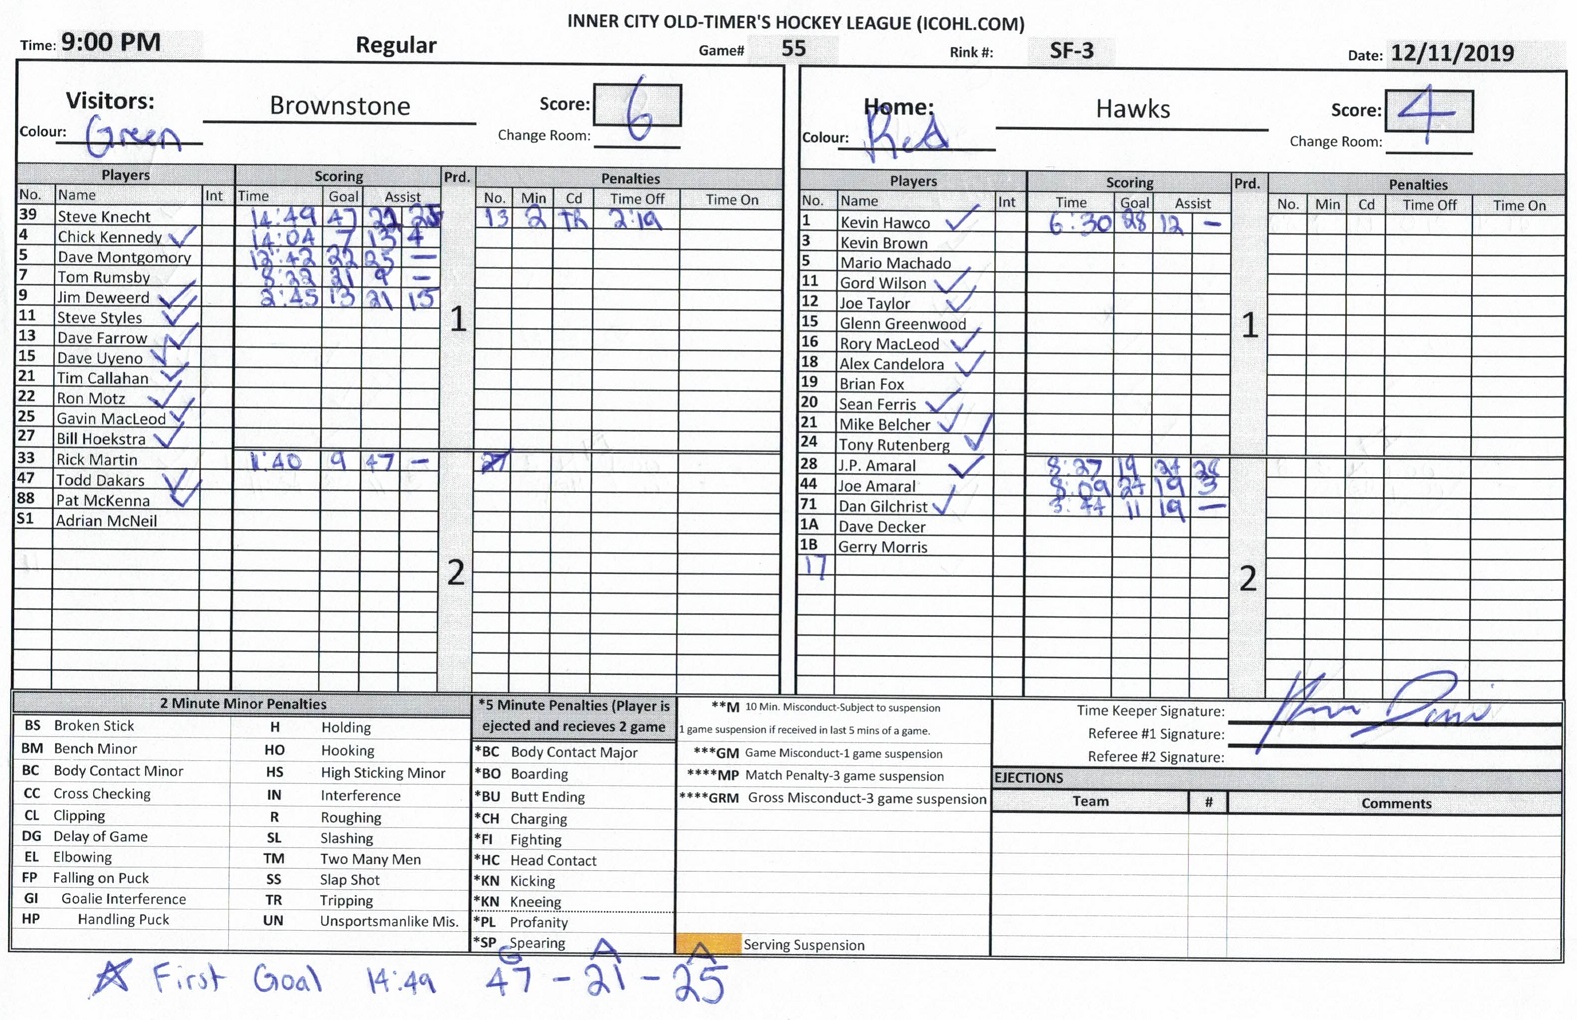 INNER CITY OLD-TIMER'S HOCKEY LEAGUE (ICOHL.COM)
Time: 9:00 PM Regular Game# 55 Rink #: SF-3 Date: 12/11/2019
Visitors: Brownstone Score: 6
Colour: Green Change Room:
Players Scoring Prd. Penalties
No. Name Int Time Goal Assist No. Min Cd Time Off Time On
39 Steve Knecht 14:49 47 21 25 13 2 TR 2:19
4 Chick Kennedy ✓ 14:04 7 13 4
5 Dave Montgomory 12:42 22 25 —
7 Tom Rumsby 8:22 21 9 —
9 Jim Deweerd ✓ 2:45 13 21 15
11 Steve Styles ✓
13 Dave Farrow ✓
15 Dave Uyeno ✓
21 Tim Callahan ✓
22 Ron Motz ✓
25 Gavin MacLeod ✓
27 Bill Hoekstra ✓
1
33 Rick Martin 1:40 9 47 —
47 Todd Dakars ✓
88 Pat McKenna ✓
S1 Adrian McNeil
2
Home: Hawks Score: 4
Colour: Red Change Room:
Players Scoring Prd. Penalties
No. Name Int Time Goal Assist No. Min Cd Time Off Time On
1 Kevin Hawco ✓ 6:30 28 12 —
3 Kevin Brown
5 Mario Machado
11 Gord Wilson ✓
12 Joe Taylor ✓
15 Glenn Greenwood
16 Rory MacLeod ✓
18 Alex Candelora ✓
19 Brian Fox
20 Sean Ferris ✓
21 Mike Belcher ✓
24 Tony Rutenberg ✓
1
28 J.P. Amaral ✓ 8:27 19 24 28
44 Joe Amaral 8:09 24 19 3
71 Dan Gilchrist ✓ 3:44 11 19 —
1A Dave Decker
1B Gerry Morris
17
2
2 Minute Minor Penalties
BS Broken Stick H Holding
BM Bench Minor HO Hooking
BC Body Contact Minor HS High Sticking Minor
CC Cross Checking IN Interference
CL Clipping R Roughing
DG Delay of Game SL Slashing
EL Elbowing TM Two Many Men
FP Falling on Puck SS Slap Shot
GI Goalie Interference TR Tripping
HP Handling Puck UN Unsportsmanlike Mis.
*5 Minute Penalties (Player is
ejected and recieves 2 game
*BC Body Contact Major
*BO Boarding
*BU Butt Ending
*CH Charging
*FI Fighting
*HC Head Contact
*KN Kicking
*KN Kneeing
*PL Profanity
*SP Spearing
**M 10 Min. Misconduct-Subject to suspension
1 game suspension if received in last 5 mins of a game.
***GM Game Misconduct-1 game suspension
****MP Match Penalty-3 game suspension
****GRM Gross Misconduct-3 game suspension
Serving Suspension
Time Keeper Signature:
Referee #1 Signature:
Referee #2 Signature:
EJECTIONS
Team # Comments
G A A
☆ First Goal 14:49 47 - 21 - 25